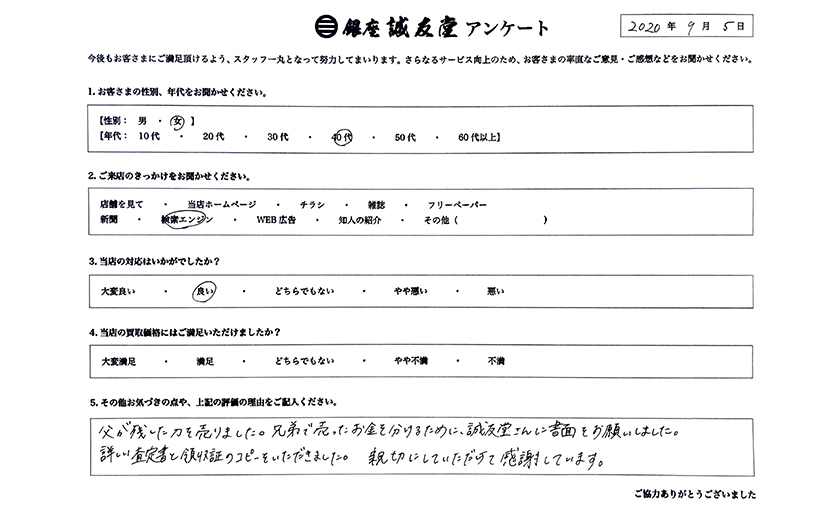 銀座 誠友堂 アンケート
2020年 9月 5日
今後もお客さまにご満足頂けるよう、スタッフ一丸となって努力してまいります。さらなるサービス向上のため、お客さまの率直なご意見・ご感想などをお聞かせください。
1. お客さまの性別、年代をお聞かせください。
【性別： 男 ・ 女 】
【年代： 10代 ・ 20代 ・ 30代 ・ 40代 ・ 50代 ・ 60代以上】
2. ご来店のきっかけをお聞かせください。
店舗を見て ・ 当店ホームページ ・ チラシ ・ 雑誌 ・ フリーペーパー
新聞 ・ 検索エンジン ・ WEB広告 ・ 知人の紹介 ・ その他（ ）
3. 当店の対応はいかがでしたか？
大変良い ・ 良い ・ どちらでもない ・ やや悪い ・ 悪い
4. 当店の買取価格にはご満足いただけましたか？
大変満足 ・ 満足 ・ どちらでもない ・ やや不満 ・ 不満
5. その他お気づきの点や、上記の評価の理由をご記入ください。
父が残した刀を売りました。兄弟で売ったお金を分けるために、誠友堂さんに書面をお願いしました。
詳しい査定書と領収証のコピーをいただきました。 親切にしていただけて感謝しています。
ご協力ありがとうございました